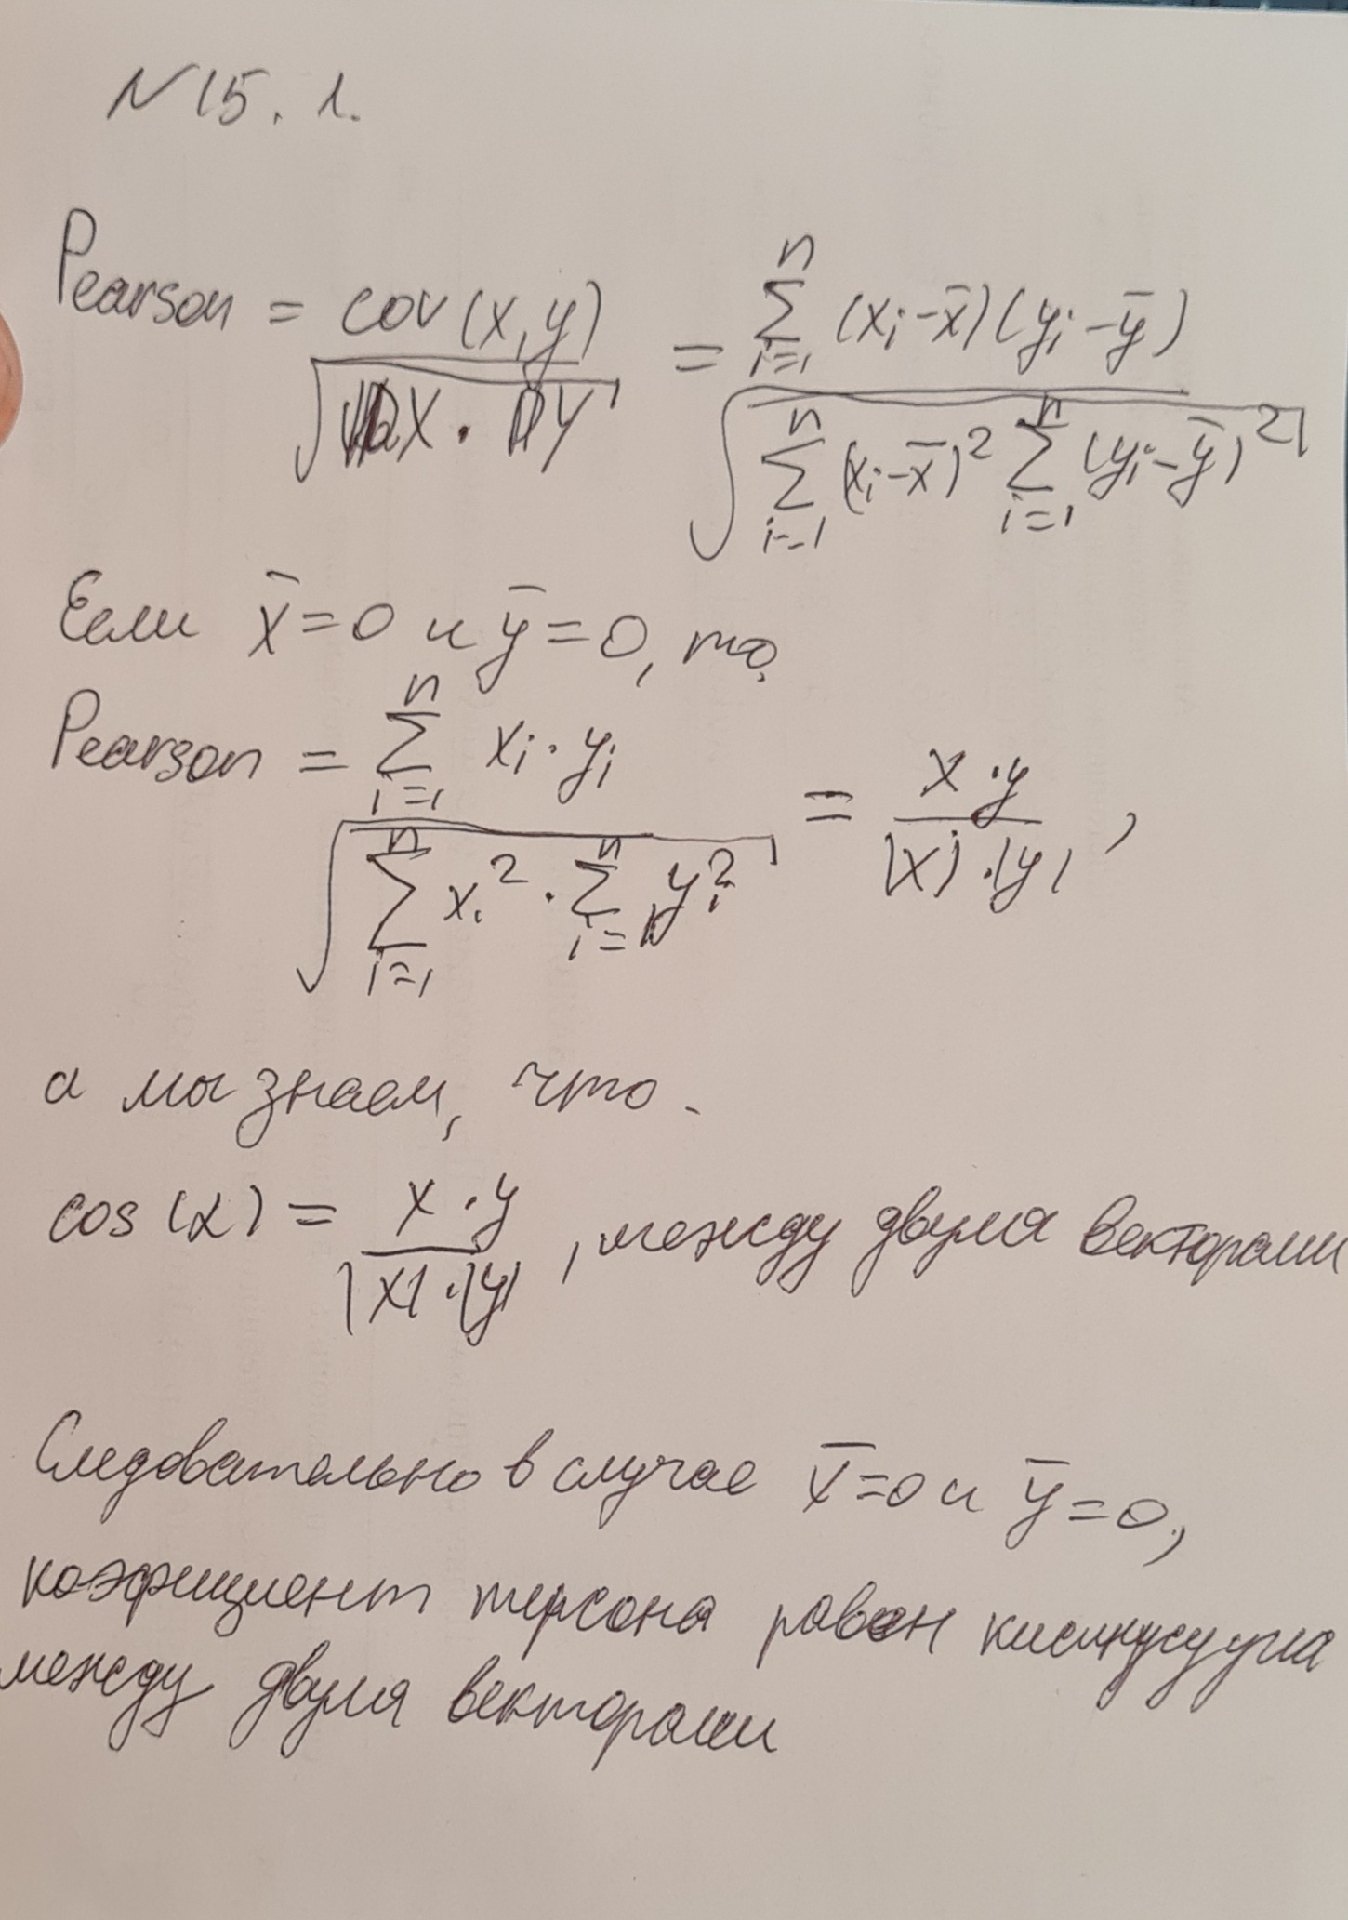 N 15. 1.
Pearson = cov(x,y) / √(DX · DY) = Σ_{i=1}^{n} (x_i - x̄)(y_i - ȳ) / √(Σ_{i=1}^{n} (x_i - x̄)² Σ_{i=1}^{n} (y_i - ȳ)²)
Если x̄ = 0 и ȳ = 0, то
Pearson = Σ_{i=1}^{n} x_i · y_i / √(Σ_{i=1}^{n} x_i² · Σ_{i=1}^{n} y_i²) = x · y / |x| · |y| ,
а мы знаем, что
cos(α) = x · y / |x| · |y| , между двумя векторами
Следовательно в случае x̄ = 0 и ȳ = 0,
коэфициент пирсона равен косинусу угла
между двумя векторами